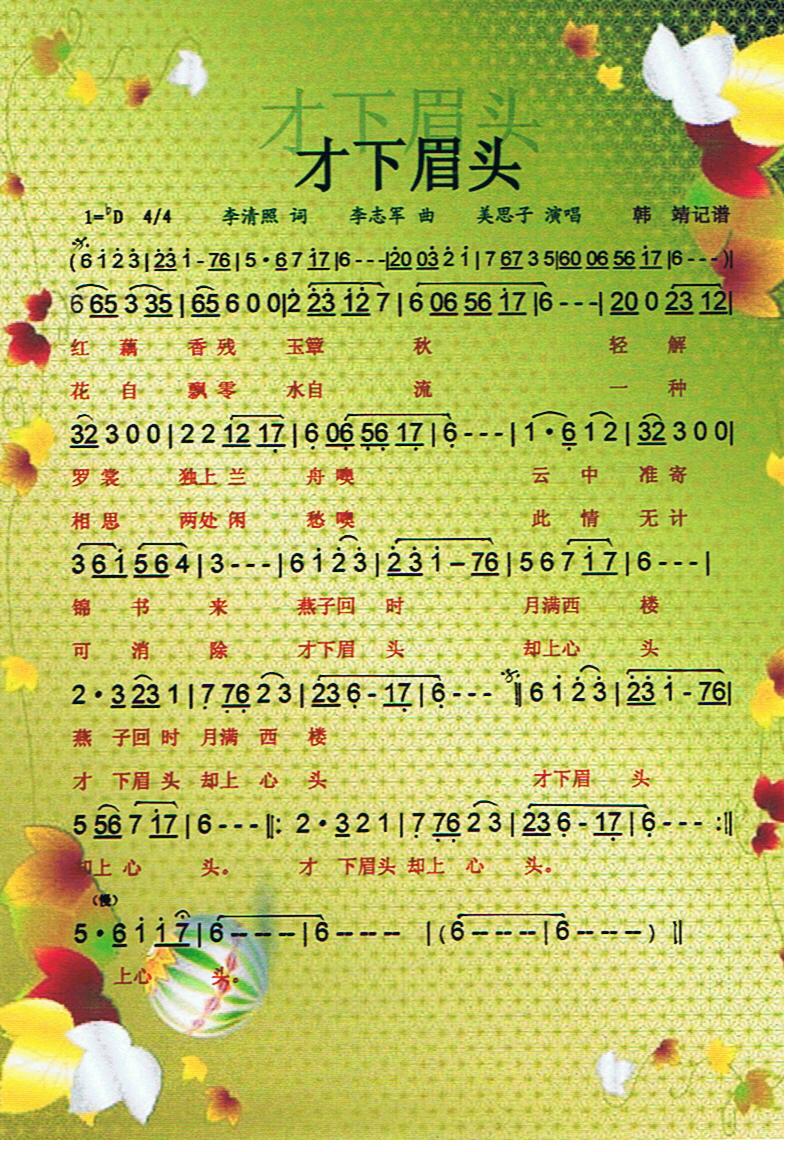 才下眉头
才下眉头
1=♭D 4/4 李清照 词 李志军 曲 美思子 演唱 韩 靖记谱
(6 1 2 3|23 1-76|5·6 7 17|6---|20 03 2 1|7 67 3 5|60 06 56 17|6---)|
6 65 3 35|65 6 0 0|2 23 12 7|6 06 56 17|6---|20 0 23 12|
红 藕 香残 玉簟 秋 轻 解
花 自 飘零 水自 流 一 种
32 3 0 0|2 2 12 17|6 06 56 17|6---|1·6 1 2|32 3 0 0|
罗 裳 独上 兰 舟 噢 云 中 准 寄
相 思 两处 闲 愁 噢 此 情 无 计
3 61 56 4|3---|6 1 2 3|23 1-76|5 6 7 17|6---|
锦 书 来 燕子回 时 月满西 楼
可 消 除 才下眉 头 却上心 头
2·3 23 1|7 76 2 3|23 6-17|6--- ‖6 1 2 3|23 1-76|
燕 子回 时 月满 西 楼
才 下眉 头 却上 心 头 才下眉 头
5 56 7 17|6---‖: 2·3 2 1|7 76 2 3|23 6-17|6---:‖
却上 心 头。 才 下眉头 却上 心 头。
(慢)
5·6 1 17|6---|6--- |(6---|6---)‖
上心 头。